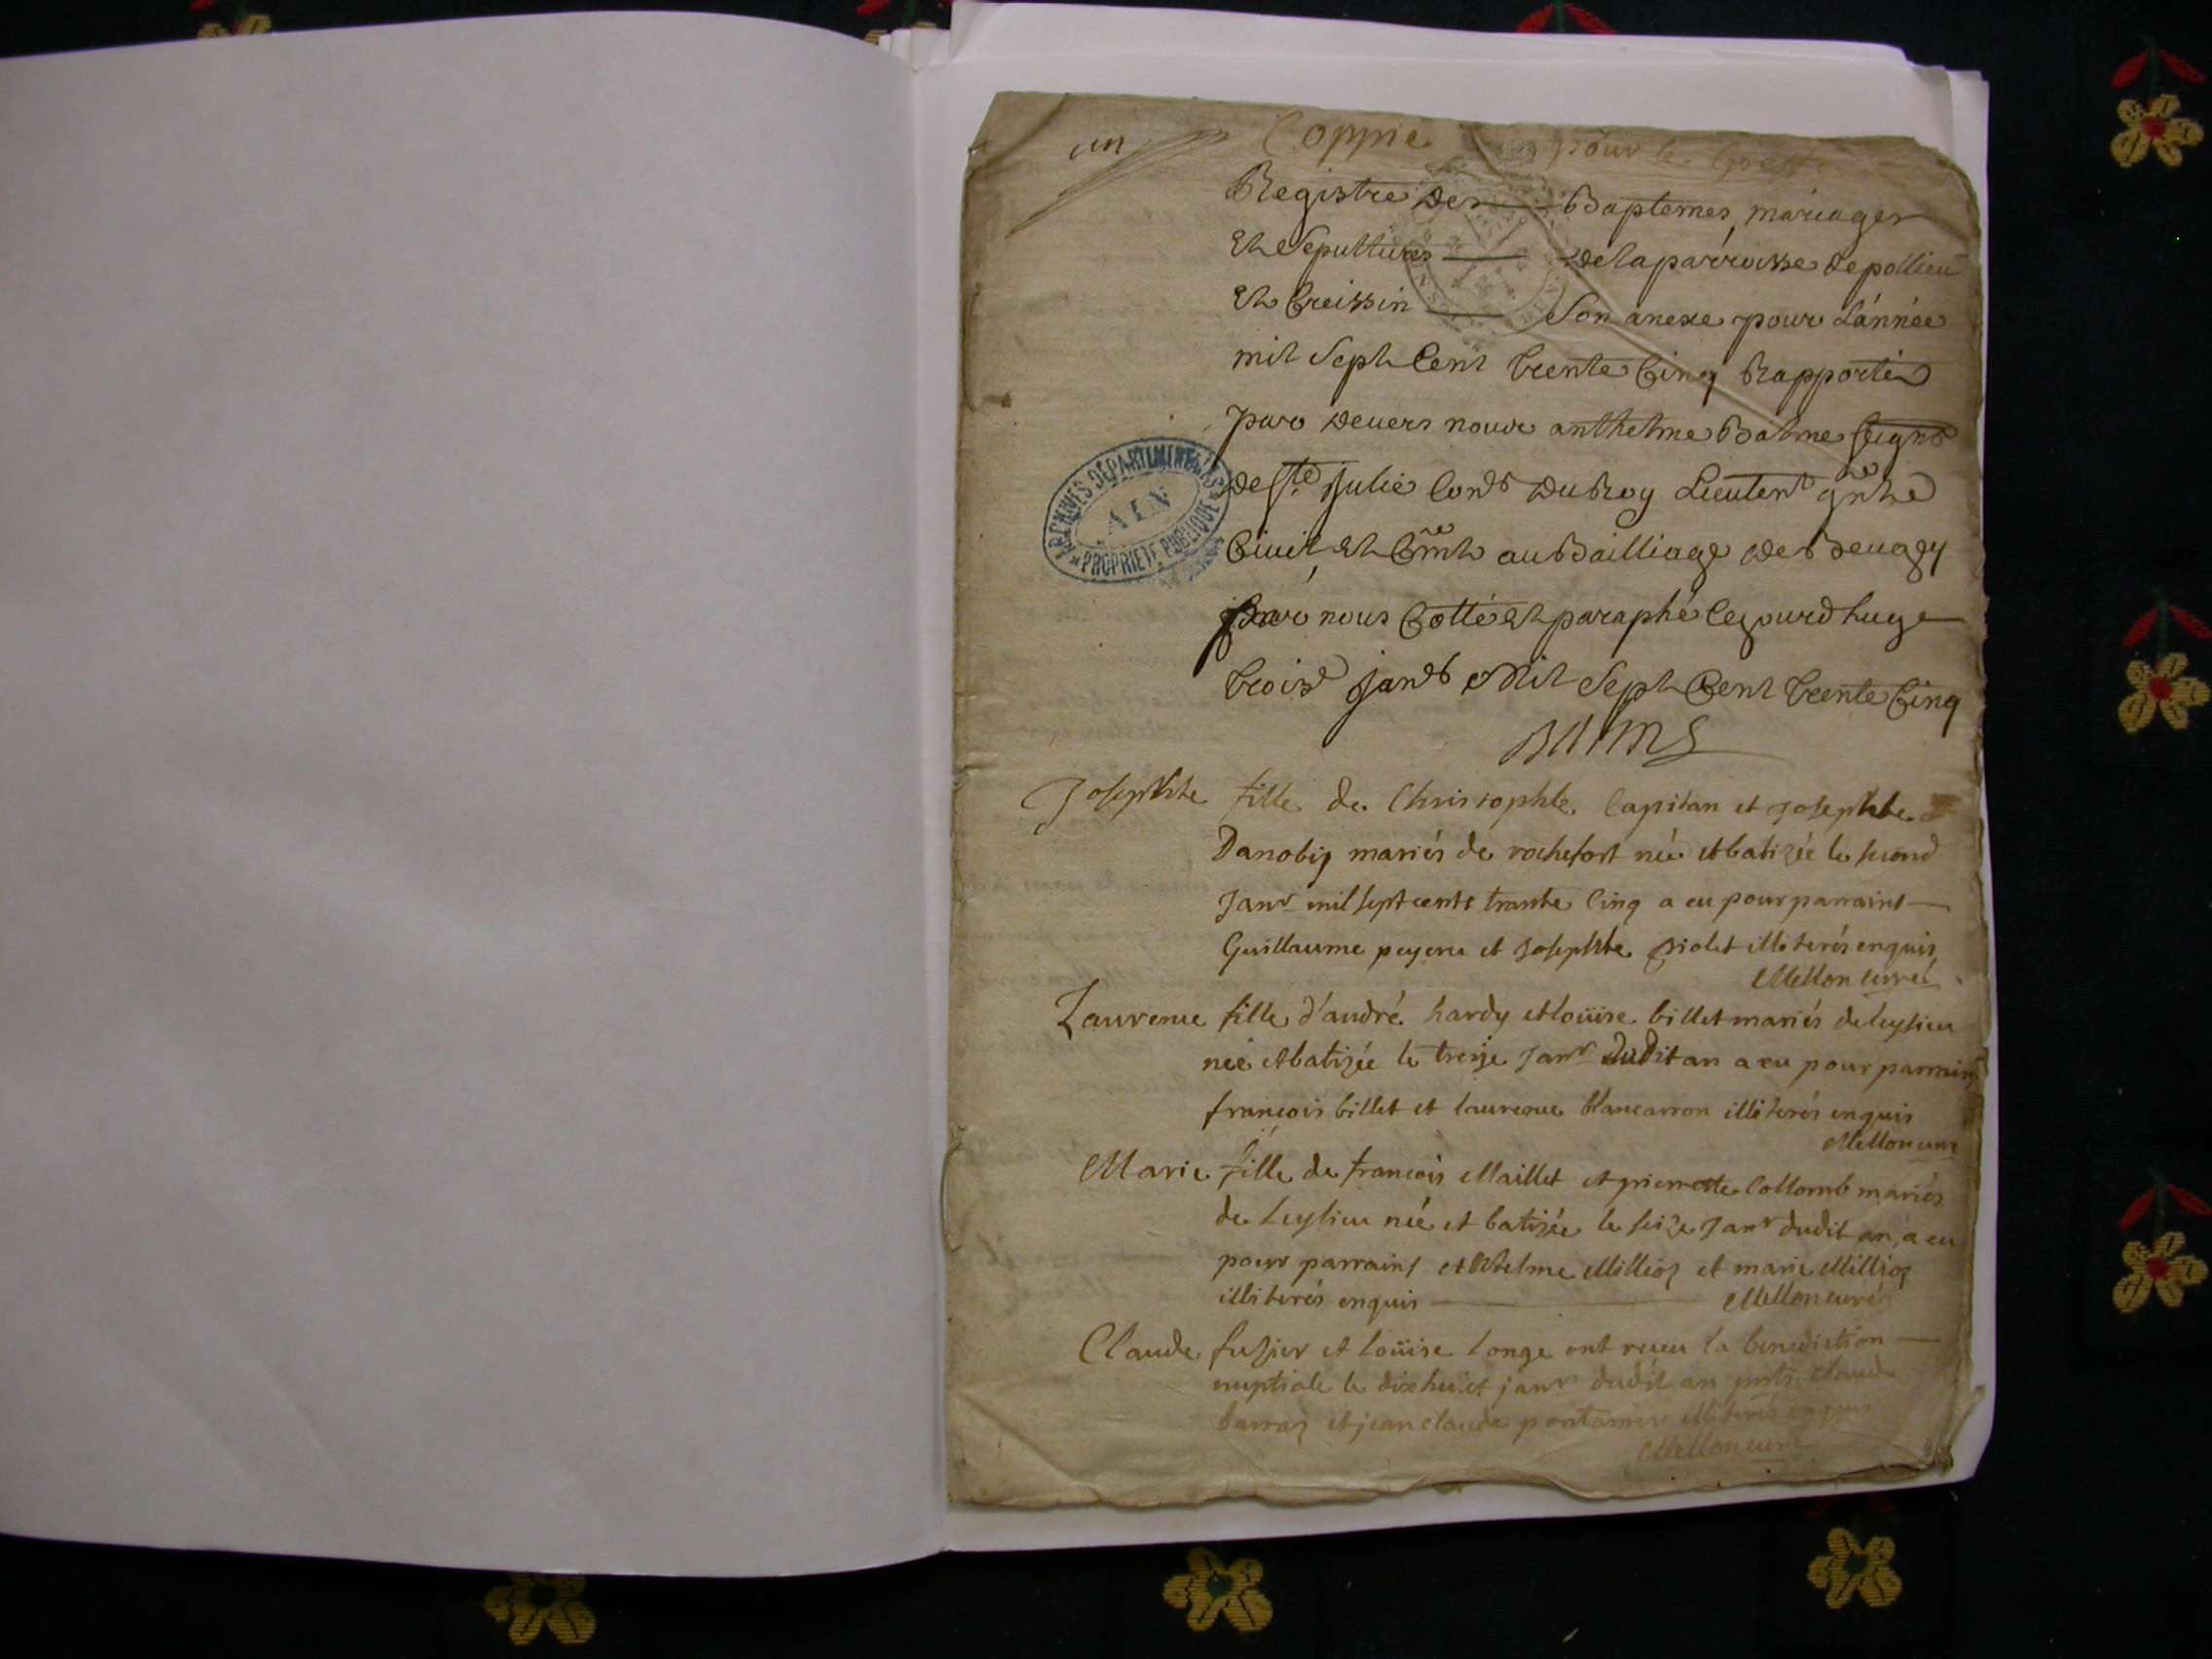 un
Coppie pour le Greffe
Registre des Baptemes, mariages
Et Sepultures de la parroisse de pollieu
Et Creissin Son anexe pour L'année
mil Sept Cent trente Cinq Rapporté
par devers nous anthelme Balme seignr
de Ste Julie Conser du Roy Lieutent gnral
Civil, Et Crimel au Bailliage de Beugey
par nous Cotté Et paraphé Cejourd huy
trois janer Mil Sept Cent trente Cinq
Balme
ARCHIVES DÉPARTEMENTALES
AIN
PROPRIÉTÉ PUBLIQUE
Josephte fille de Christophle Capitan et Josephte
Danobig mariés de rochefort née et batizée le second
Janr mil sept cents trante Cinq a eu pour parrains
Guillaume payene et Josephte violet illiterés enquis
Mellon curé
Laurence fille d'andré hardy et loüise billet mariés de leysieu
née et batizée le treize Janr dudit an a eu pour parrains
francois billet et laurence blancarron illiterés enquis
Mellon curé
Marie fille de francois Maillet et pierrotte Collomb mariés
de Leysieu née et batizée le seize Janr dudit an, a eu
pour parrains Anthelme Millioz et marie Millioz
illiterés enquis Mellon curé
Claude fusier et loüise Longe ont receu la benediction
nuptiale le dixhuict janr dudit an pnts Claude
et jean claude pontanier illiterés enquis
Mellon curé